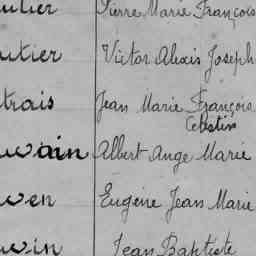 utier Pierre Marie François
utier Victor Alexis Joseph
trais Jean Marie François
Célestin
wain Albert Ange Marie
wen Eugène Jean Marie
win Jean Baptiste